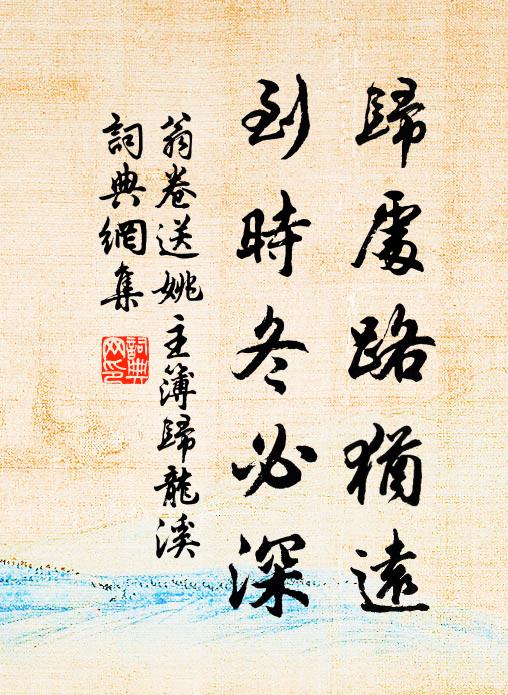 歸處路猶遠
到時冬必深
翁卷送姚主簿歸龍溪
詞典網集
詞典网印